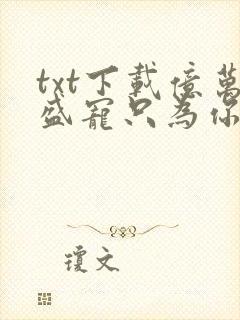 txt下載億萬
盛寵只為你
瓊文